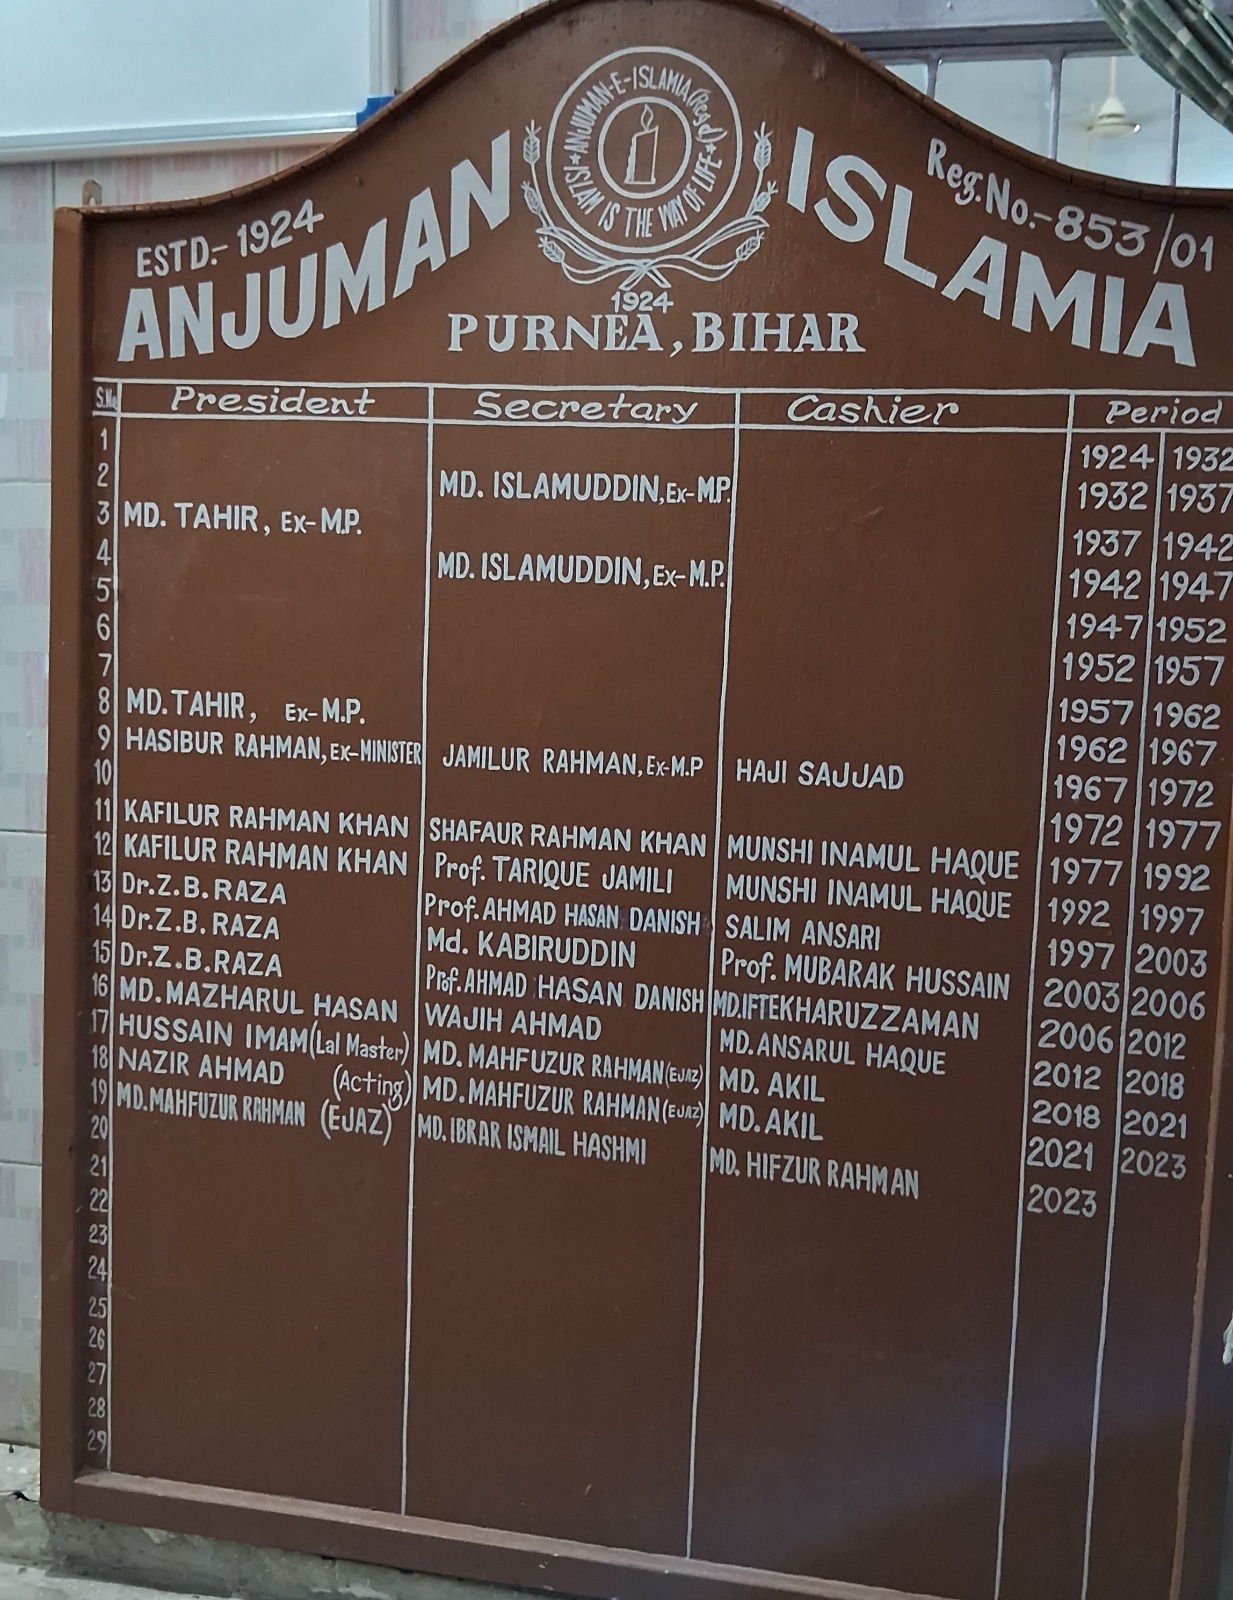 ANJUMAN-E-ISLAMIA (Regd)
ISLAM IS THE WAY OF LIFE
1924
ESTD:- 1924
Reg.No.:-853/01
ANJUMAN ISLAMIA
PURNEA, BIHAR
S.No President Secretary Cashier Period
1 1924 1932
2 MD. ISLAMUDDIN, Ex-M.P. 1932 1937
3 MD. TAHIR, Ex-M.P. 1937 1942
4 MD. ISLAMUDDIN, Ex-M.P. 1942 1947
5 1947 1952
6 1952 1957
7 1957 1962
8 MD. TAHIR, Ex-M.P. 1962 1967
9 HASIBUR RAHMAN, Ex-MINISTER JAMILUR RAHMAN, Ex-M.P HAJI SAJJAD 1967 1972
10 1972 1977
11 KAFILUR RAHMAN KHAN SHAFAUR RAHMAN KHAN MUNSHI INAMUL HAQUE 1977 1992
12 KAFILUR RAHMAN KHAN Prof. TARIQUE JAMILI MUNSHI INAMUL HAQUE 1992 1997
13 Dr.Z.B.RAZA Prof. AHMAD HASAN DANISH SALIM ANSARI 1997 2003
14 Dr.Z.B.RAZA Md. KABIRUDDIN Prof. MUBARAK HUSSAIN 2003 2006
15 Dr.Z.B.RAZA Prof. AHMAD HASAN DANISH MD.IFTEKHARUZZAMAN 2006 2012
16 MD. MAZHARUL HASAN WAJIH AHMAD MD.ANSARUL HAQUE 2012 2018
17 HUSSAIN IMAM (Lal Master) MD. MAHFUZUR RAHMAN (EJAZ) MD. AKIL 2018 2021
18 NAZIR AHMAD (Acting) MD. MAHFUZUR RAHMAN (EJAZ) MD. AKIL 2021 2023
19 MD. MAHFUZUR RAHMAN (EJAZ) MD. IBRAR ISMAIL HASHMI MD. HIFZUR RAHMAN 2023
20
21
22
23
24
25
26
27
28
29